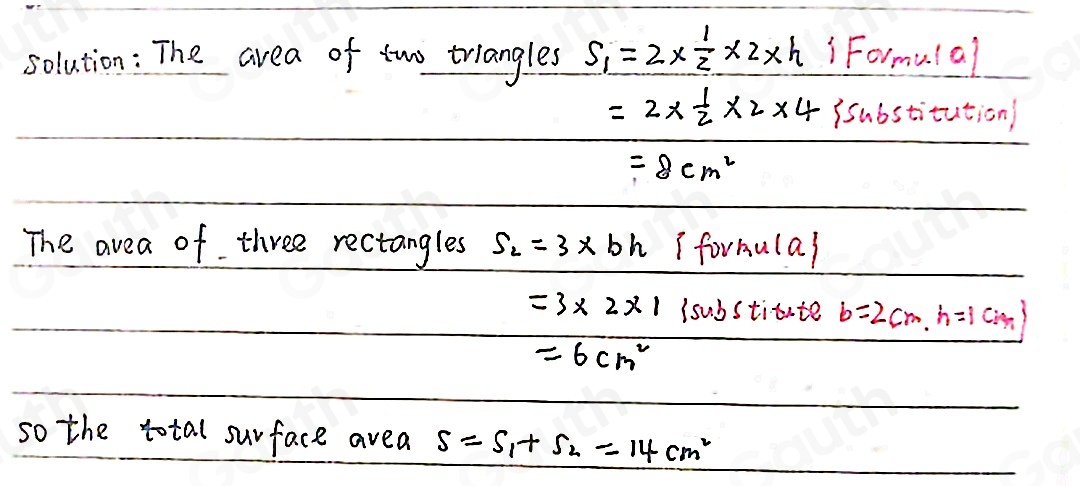 Solution: The area of two triangles S₁ = 2 × 1/2 × 2 × h {Formula}
= 2 × 1/2 × 2 × 4 {substitution}
= 8 cm²
The area of three rectangles S₂ = 3 × bh {formula}
= 3 × 2 × 1 {substitute b=2cm, h=1cm}
= 6 cm²
so the total surface area S = S₁ + S₂ = 14 cm²